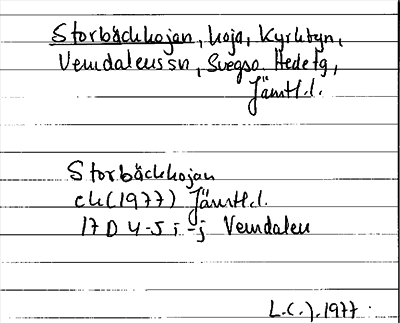 Storbäckkojan, koja, Kyrkbyn,
Vemdalens sn, Svegs o. Hede tg,
Jämtl.l.
Storbäckkojan
ek (1977) Jämtl.l.
17 D 4-5 i-j Vemdalen
L.C.J. 1977.